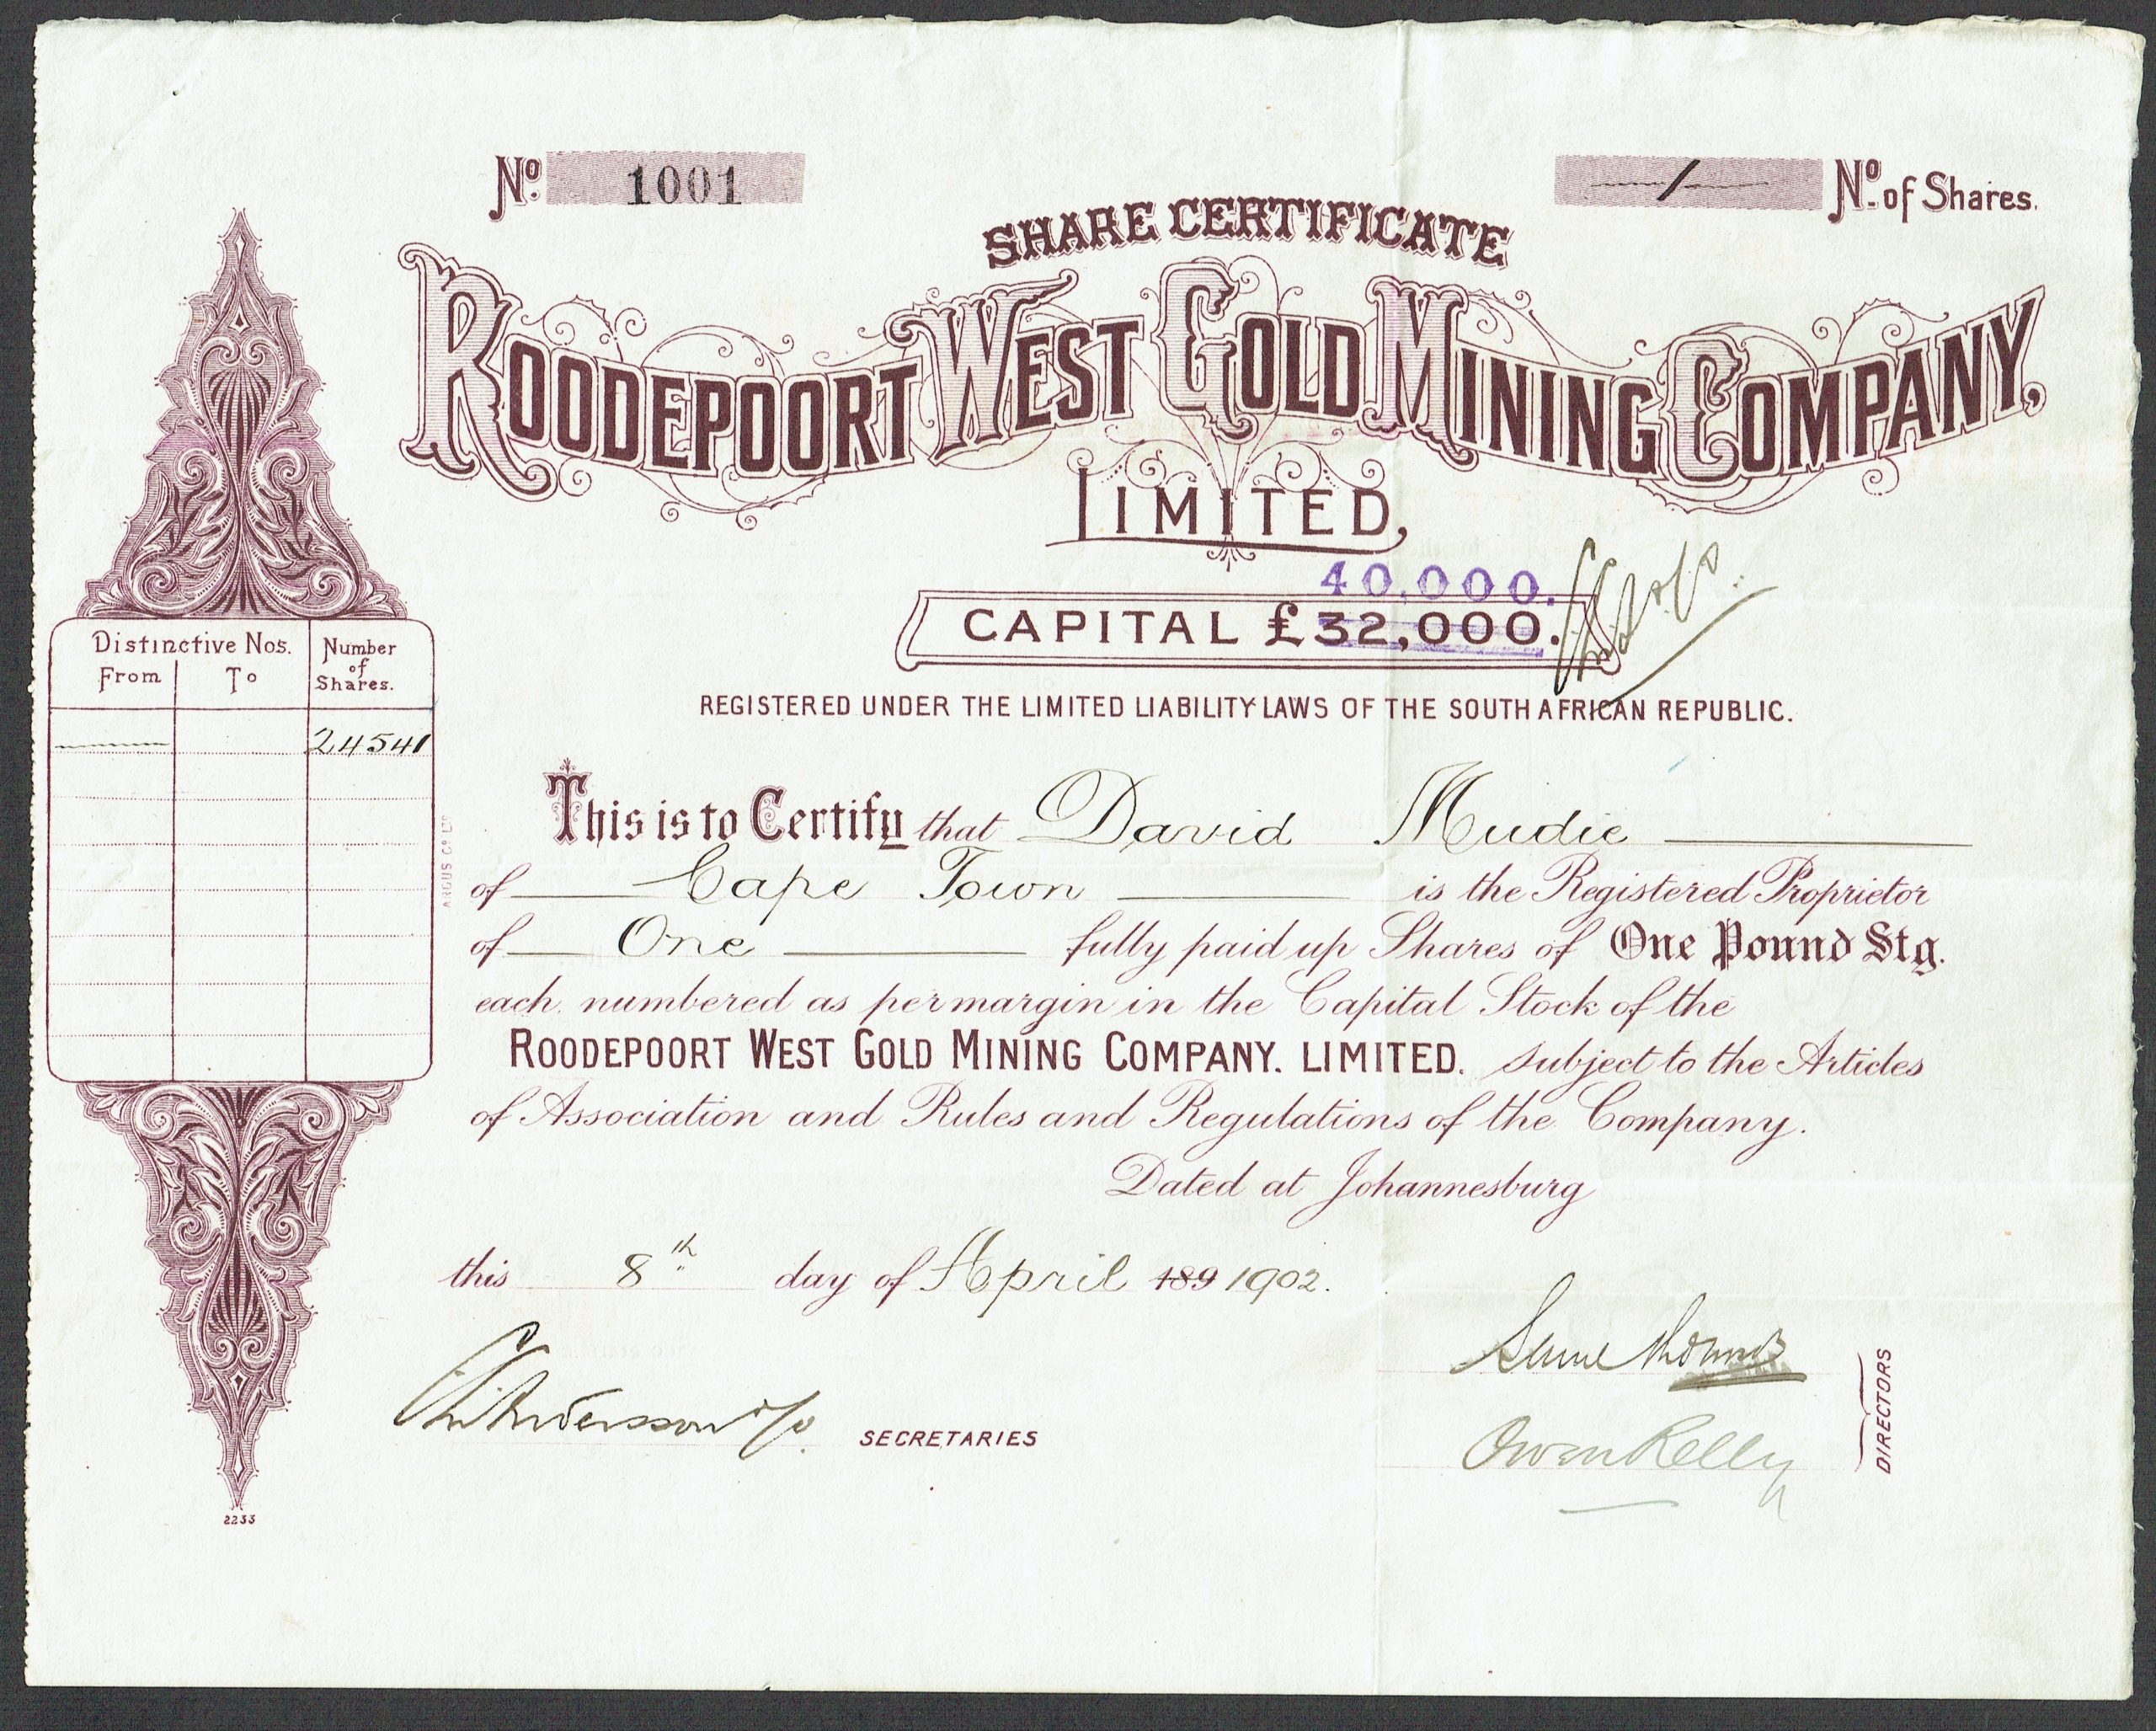 No. 1001
1 No. of Shares.
SHARE CERTIFICATE
ROODEPOORT WEST GOLD MINING COMPANY,
LIMITED,
40,000.
CAPITAL £32,000.
REGISTERED UNDER THE LIMITED LIABILITY LAWS OF THE SOUTH AFRICAN REPUBLIC.
Distinctive Nos. Number of Shares.
From To
24541
ARGUS Co LTD
This is to Certify that David Mudie
of Cape Town is the Registered Proprietor
of One fully paid up Shares of One Pound Stg.
each numbered as per margin in the Capital Stock of the
ROODEPOORT WEST GOLD MINING COMPANY. LIMITED. subject to the Articles
of Association and Rules and Regulations of the Company.
Dated at Johannesburg
this 8th day of April 189 1902.
SECRETARIES
Owen Kelly
DIRECTORS
2233